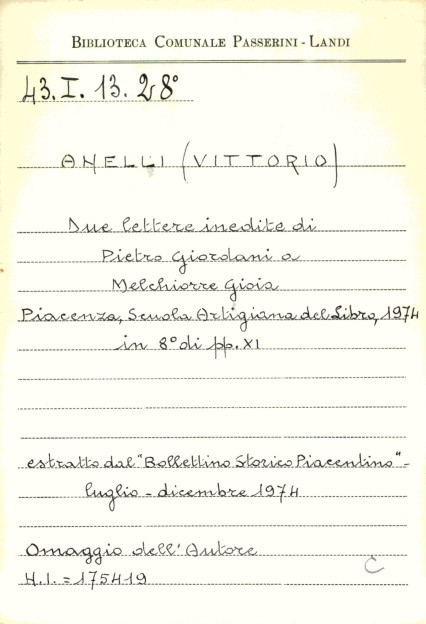 BIBLIOTECA COMUNALE PASSERINI - LANDI
43. I. 13. 28°
ANELLI (VITTORIO)
Due lettere inedite di
Pietro Giordani a
Melchiorre Gioia
Piacenza, Scuola Artigiana del Libro, 1974
in 8° di pp. XI
estratto dal "Bollettino Storico Piacentino" -
luglio - dicembre 1974
Omaggio dell'Autore
H.I. = 175419
C